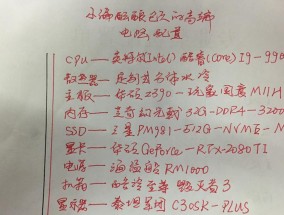 电脑配置
CPU——英特尔(Intel) 酷睿(Core) I9-990
散热器——一体水冷
主板——华硕 Z390-玩家国度 M11H
内存——芝奇幻光戟 32G-DDR4-3200
SSD——三星PM981-512G-NVME-M
显卡——华硕GeForce-RTX-2080TI
电源——海盗船 RM1000
机箱——至尊 毁灭者3
显示器——泰坦军团 C30SK-PLUS